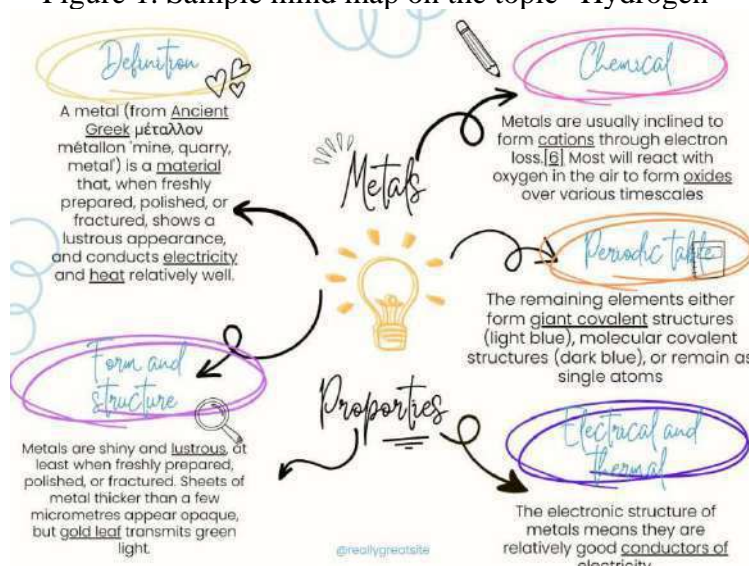 Figure 1. Sample mind map on the topic "Hydrogen"
Definition
A metal (from Ancient
Greek μέταλλον
métallon 'mine, quarry,
metal') is a material
that, when freshly
prepared, polished, or
fractured, shows a
lustrous appearance,
and conducts electricity
and heat relatively well.
Form and
structure
Metals are shiny and lustrous, at
least when freshly prepared,
polished, or fractured. Sheets of
metal thicker than a few
micrometres appear opaque,
but gold leaf transmits green
light.
Metals
Proporties
@reallygreatsite
Chemical
Metals are usually inclined to
form cations through electron
loss.[6] Most will react with
oxygen in the air to form oxides
over various timescales
Periodic table
The remaining elements either
form giant covalent structures
(light blue), molecular covalent
structures (dark blue), or remain as
single atoms
Electrical and
thermal
The electronic structure of
metals means they are
relatively good conductors of
electricity